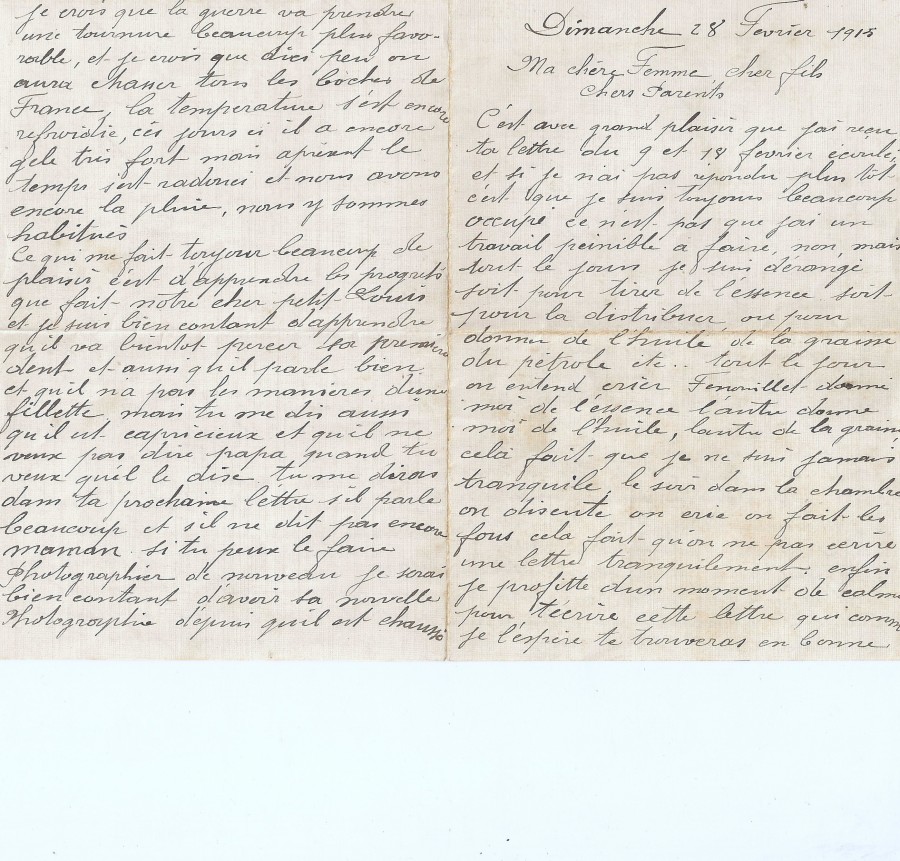 je crois que la guerre va prendre
une tournure beaucoup plus favo-
rable, et je crois que dici peu on
aura chasser tous les boches de
France, la temperature s'est encore
refroidie, ces jours ci il a encore
gele très fort mais aprèsent le
temps sest radouci et nous avons
encore la pluie, nous y sommes
habitués
Ce qui me fait toujour beaucoup de
plaisir c'est d'apprendre les progrets
que fait notre cher petit Louis
et je suis bien contant d'apprendre
qu'il va bientot percer sa premiere
dent et aussi qu'il parle bien.
et quil n'a pas les manières d'une
fillette, mais tu me dis aussi
qu'il est capricieux et qu'il ne
veux pas dire papa quand tu
veux quèl le dise. tu me dirois
dans ta prochaine lettre s'il parle
beaucoup et s'il ne dit pas encore
maman. si tu peux le faire
Photographier de nouveau je serais
bien contant d'avoir sa nouvelle
Photographie depuis quil est chaussé
Dimanche 28 Fevrier 1915
Ma chère Femme, cher fils
Chers Parents
C'est avec grand plaisir que j'ai reçu
ta lettre du 9 et 18 fevrier écoulé,
et si je n'ai pas repondu plus tôt
c'est que je suis toujours beaucoup
occupé ce n'est pas que j'ai un
travail peinible a faire, non, mais
tout le jours je suis dérangé
soit pour tirer de l'essence soit
pour la distribuer ou pour
donner de l'huile de la graisse
du pétrole itc.. tout le jour
on entend crier Fenouillet donne
moi de l'essence l'autre donne
moi de l'huile, lautre de la graisse
cela fait que je ne suis jamais
tranquile, le soir dans la chambre
on discute on crie on fait les
fous cela fait qu'on ne pas ecrire
une lettre tranquilement. enfin
je profitte d'un moment de calme
pour t'ecrire cette lettre qui comme
je l'espère te trouveras en bonne